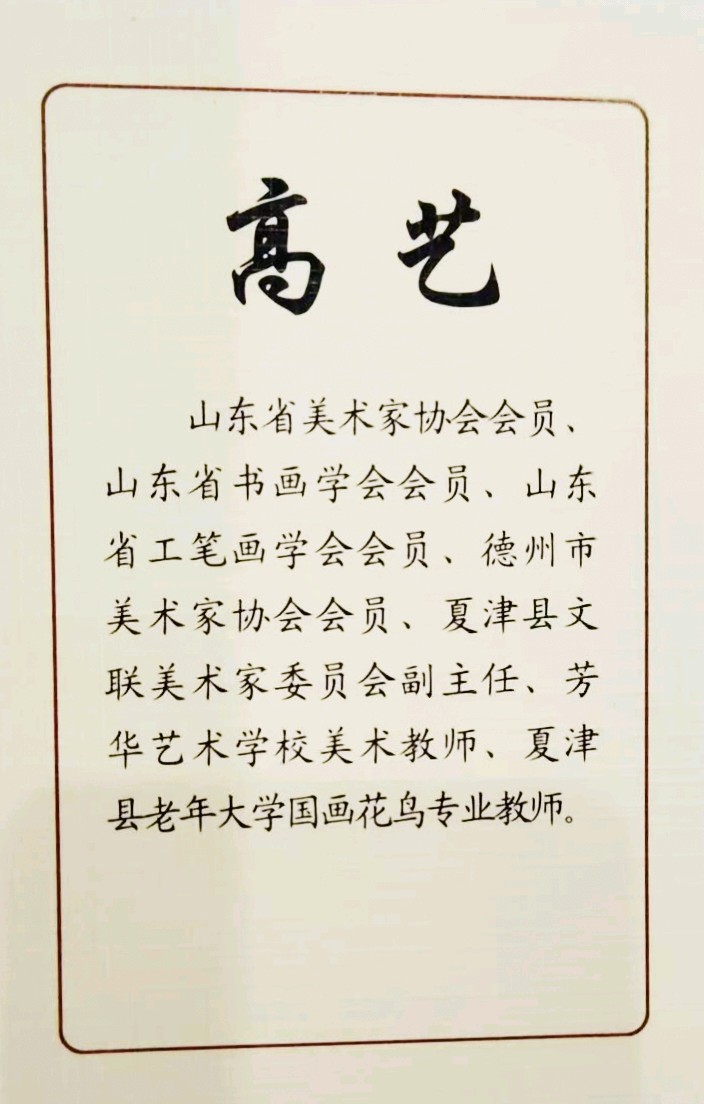 高艺
山东省美术家协会会员、
山东省书画学会会员、山东
省工笔画学会会员、德州市
美术家协会会员、夏津县文
联美术家委员会副主任、芳
华艺术学校美术教师、夏津
县老年大学国画花鸟专业教师。